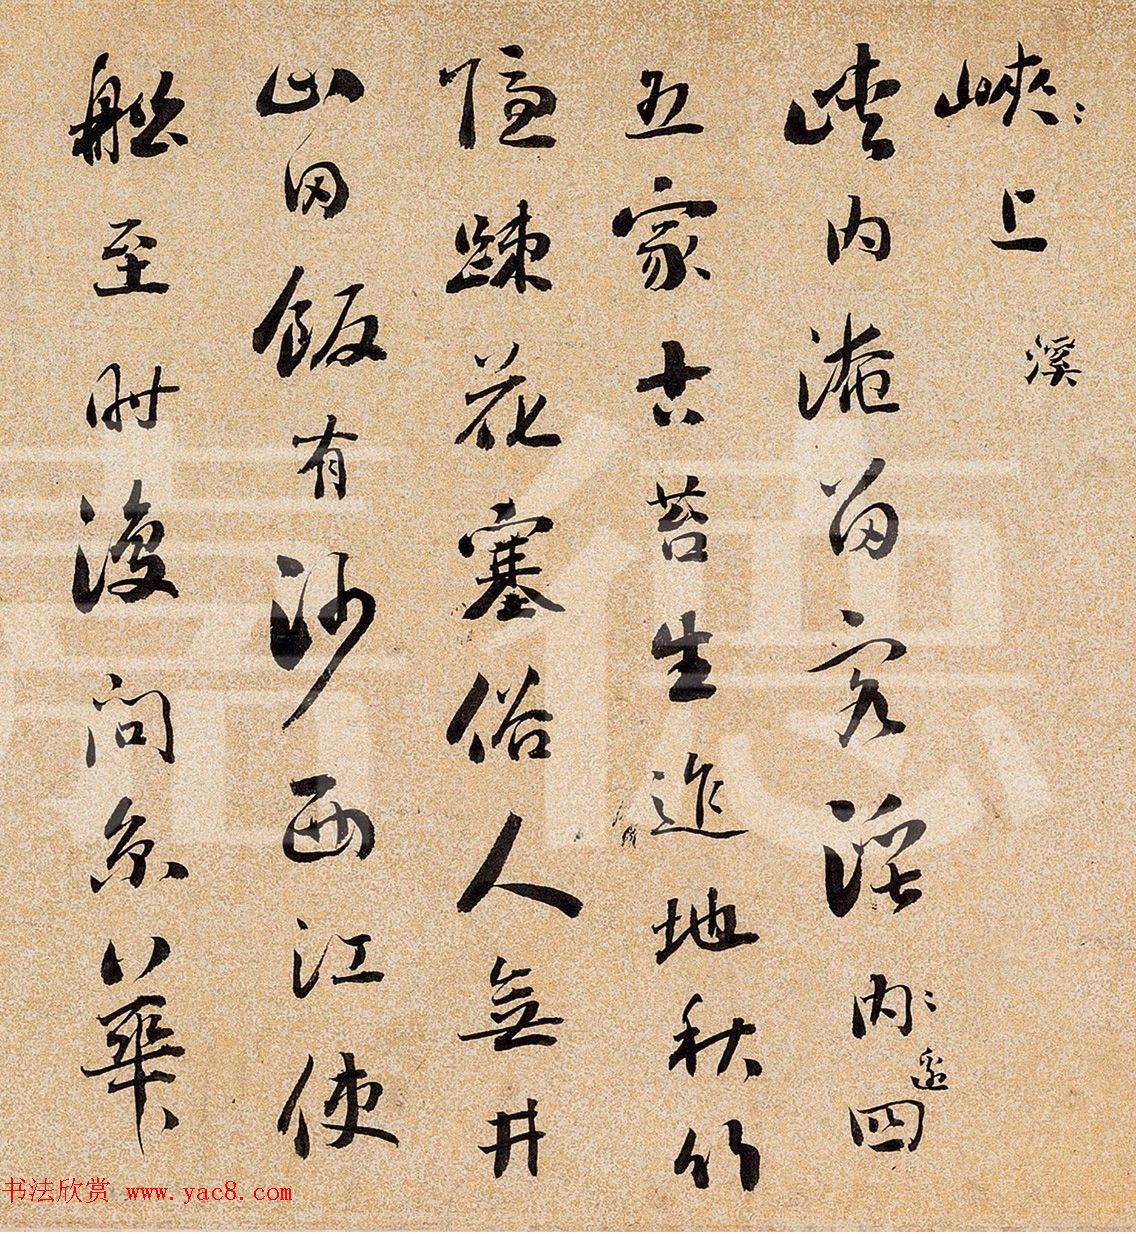 峽上溪
峡内淹留客溪内邊四
五家古苔生迮地秋竹
隱踈花塞俗人無井
山田飯有沙西江使
船至时復問京華
书法欣赏 www.yac8.com